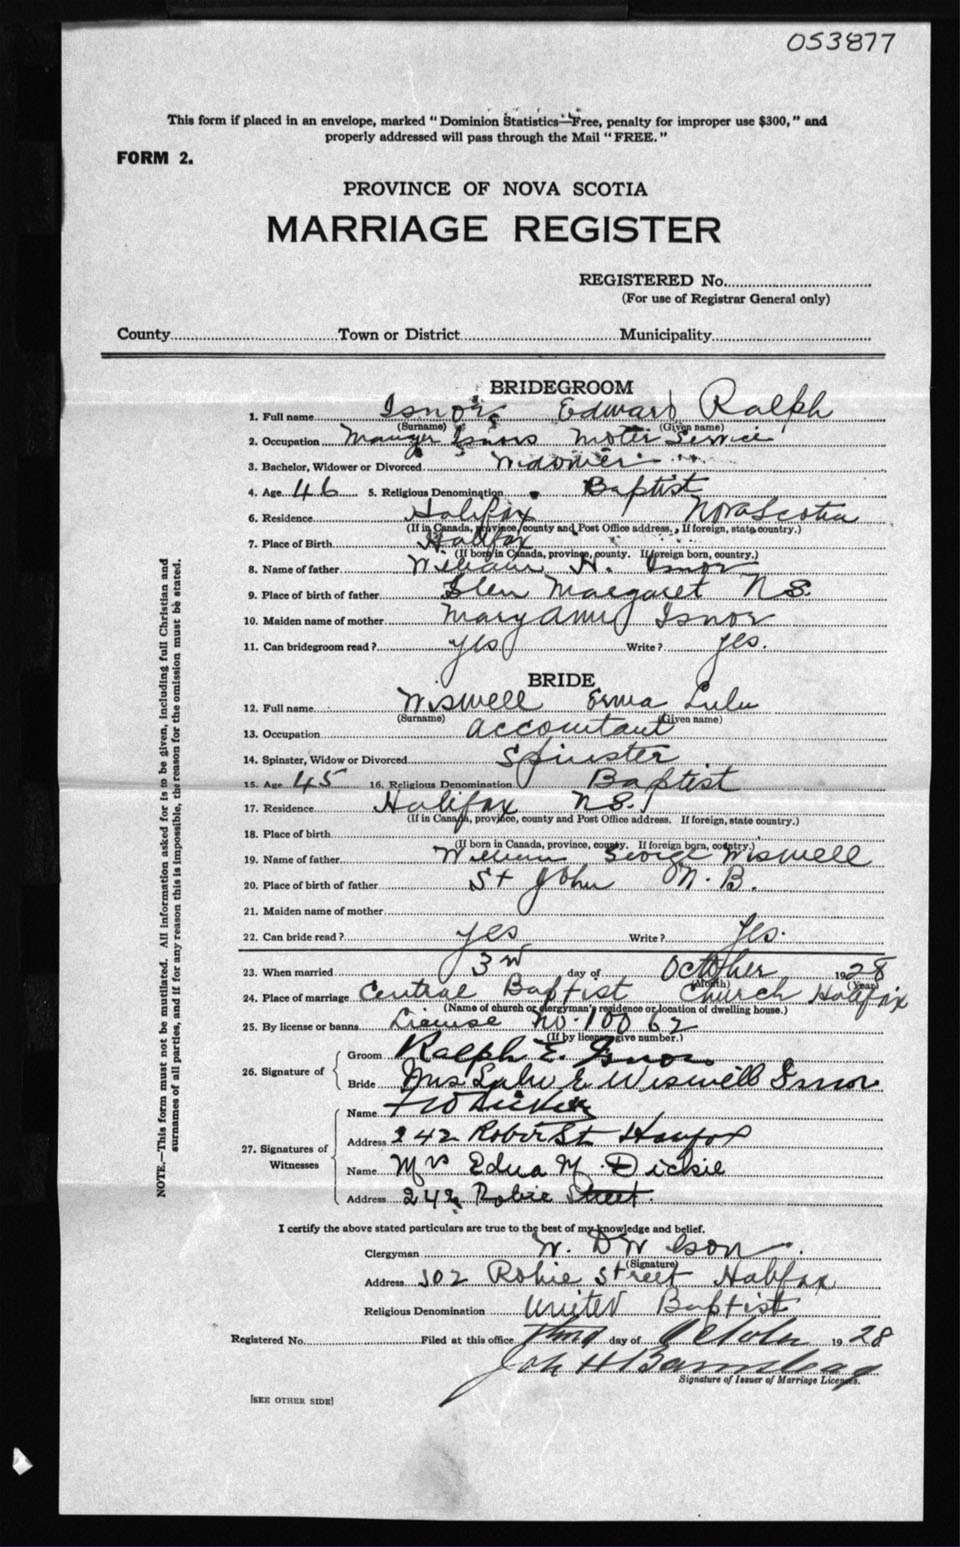 053877
This form if placed in an envelope, marked "Dominion Statistics—Free, penalty for improper use $300," and
properly addressed will pass through the Mail "FREE."
FORM 2.
PROVINCE OF NOVA SCOTIA
MARRIAGE REGISTER
REGISTERED No.
(For use of Registrar General only)
County Town or District Municipality
BRIDEGROOM
1. Full name Isnor Edward Ralph
(Surname) (Given name)
2. Occupation Manager Isnors Motor Service
3. Bachelor, Widower or Divorced Widower
4. Age 46 5. Religious Denomination Baptist
6. Residence Halifax Nova Scotia
(If in Canada, province, county and Post Office address. If foreign, state country.)
7. Place of Birth Halifax
(If born in Canada, province, county. If foreign born, country.)
8. Name of father William H. Isnor
9. Place of birth of father Glen Margaret N.S.
10. Maiden name of mother Mary Ann Isnor
11. Can bridegroom read? yes Write? yes.
BRIDE
12. Full name Wiswell Erma Lulu
(Surname) (Given name)
13. Occupation accountant
14. Spinster, Widow or Divorced Spinster
15. Age 45 16. Religious Denomination Baptist
17. Residence Halifax N.S.
(If in Canada, province, county and Post Office address. If foreign, state country.)
18. Place of birth
(If born in Canada, province, county. If foreign born, country.)
19. Name of father William George Wiswell
20. Place of birth of father St John N.B.
21. Maiden name of mother
22. Can bride read? yes Write? Yes.
23. When married 3rd day of October 1928
(Month) (Year)
24. Place of marriage Central Baptist Church Halifax
(Name of church or clergyman's residence or location of dwelling house.)
25. By license or banns License No. 10062
(If by license give number.)
26. Signature of
Groom Ralph E. Isnor
Bride Mrs Lulu E Wiswell Isnor
27. Signatures of
Witnesses
Name
Address 242 Robie St Halifax
Name Mrs Edna M Dickie
Address 242 Robie Street.
I certify the above stated particulars are true to the best of my knowledge and belief.
Clergyman
(Signature)
Address 302 Robie Street Halifax
Religious Denomination United Baptist
Registered No. Filed at this office Third day of October 1928
Signature of Issuer of Marriage Licenses.
[SEE OTHER SIDE]
NOTE.—This form must not be mutilated. All information asked for is to be given, including full Christian and
surnames of all parties, and if for any reason this is impossible, the reason for the omission must be stated.